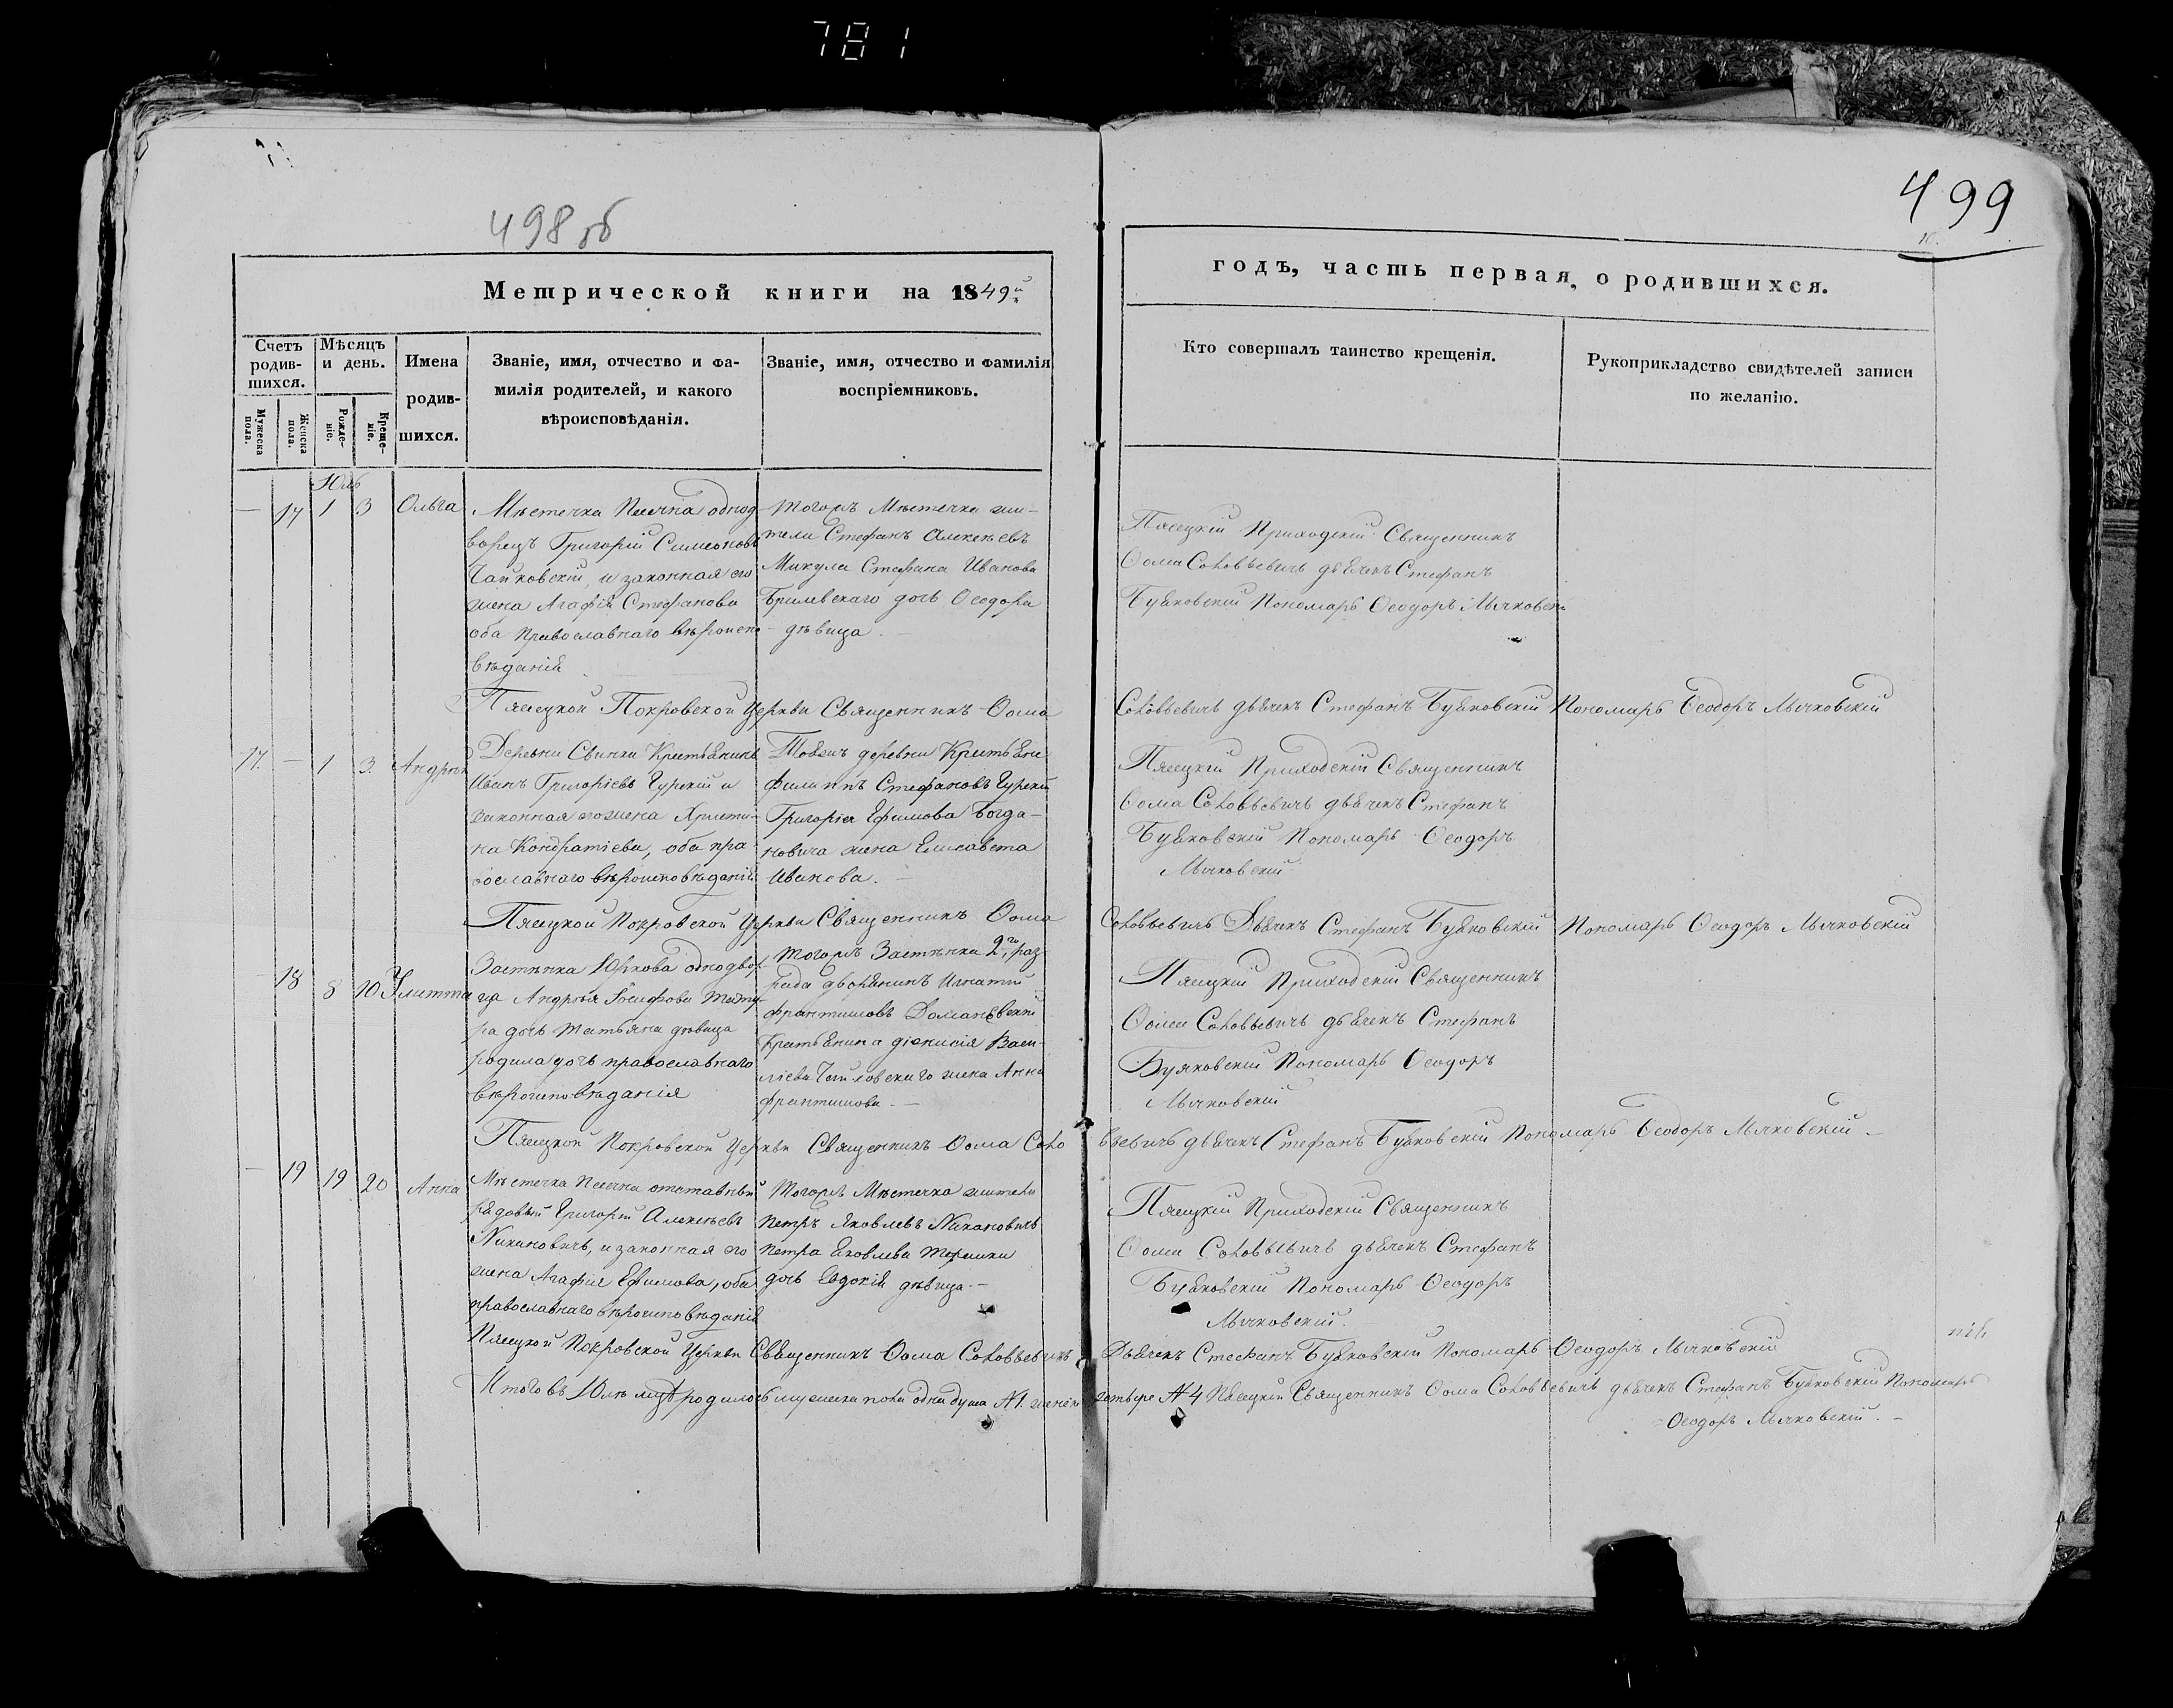 781
498 об
499
Метрической книги на 1849й
годъ, часть первая, о родившихся.
Счетъ родив-
шихся.
Мужеска
пола.
Женска
пола.
Мѣсяцъ
и день.
Рожде-
ніе.
Креще-
ніе.
Имена
родив-
шихся.
Званіе, имя, отчество и фа-
милія родителей, и какого
вѣроисповѣданія.
Званіе, имя, отчество и фамилія
воспріемниковъ.
Кто совершалъ таинство крещенія.
Рукоприкладство свидѣтелей записи
по желанію.
Юль
— 17 1 3 Ольга
Мѣстечка однод
ворецъ Григорій Симеоновъ
Чайковскій, и законная его
жена Агафія Стефанова
оба православнаго вѣроиспо
вѣданія
тогожъ Мѣстечка жи-
тели Стефанъ Алексѣевъ
Микула Стефана Иванова
Брилевскаго дочь Ѳеодора
дѣвица. —
Пясецкій Приходскій Священникъ
Ѳома Соловьевичь дьячекъ Стефанъ
Буяковскій Пономарь Ѳеодоръ Мычковскі
Пясецкой Покровской Церкви Священникъ Ѳома Соловьевичь дьячекъ Стефанъ Буяковскій Пономарь Ѳеодоръ Мычковскій
17. — 1 3. Андрей
Деревни Свинки Крестьянинъ
Иванъ Григоріевъ Гурскій и
законная его жена Христи-
на Кондратіева, оба пра-
вославнаго вѣроисповѣданія
Тоежъ деревни Крестьяни
Филиппъ Стефановъ Гурскій
Григорія Ефимова Богда-
новича жена Елисавета
Иванова. —
Пясецкій Приходскій Священникъ
Ѳома Соловьевичь дьячекъ Стефанъ
Буяковскій Пономарь Ѳеодоръ
Мычковскій
Пясецкой Покровской Церкви Священникъ Ѳома Соловьевичь Дьячекъ Стефанъ Буяковскій Пономарь Ѳеодоръ Мычковскій
18 8 10 Улитта
Застѣнка Юркова однодвор
ца Андрея Іосифова
ра дочь Татьяна дѣвица
родила дочь православнаго
вѣроисповѣданія
тогожъ Застѣнка 2го раз
ряда дворянинъ Игнатій
Франтишовъ Доманевскій
Крестьянина Діонисія Васи-
ліева Чайковскаго жена Анна
Франтишова. —
Пясецкій Приходскій Священникъ
Ѳома Соловьевичь дьячекъ Стефанъ
Буяковскій Пономарь Ѳеодоръ
Мычковскій
Пясецкой Покровской Церкви Священникъ Ѳома Соловьевичь дьячекъ Стефанъ Буяковскій Пономарь Ѳеодоръ Мычковскій —
— 19 19 20 Анна
Мѣстечка отставный
рядовый Григорій Алексѣевъ
Никановичь, и законная его
жена Агафія Ефимова, оба
православнаго вѣроисповѣданія
Тогожъ Мѣстечка жители
Петръ Яковлевъ Никановичь
Петра Яковлева
дочь Евдокія дѣвица. —
Пясецкій Приходскій Священникъ
Ѳома Соловьевичь дьячекъ Стефанъ
Буяковскій Пономарь Ѳеодоръ
Мычковскій.
Пясецкой Покровской Церкви Священникъ Ѳома Соловьевичь Дьячекъ Стефанъ Буяковскій Пономарь Ѳеодоръ Мычковскій
Итого въ Юлѣ мцѣ родилось мужеска пола одна душа №1. женск четыре №4 Пясецкій Священникъ Ѳома Соловьевичь дьячекъ Стефанъ Буяковскій Пономарь
Ѳеодоръ Мычковскій. —